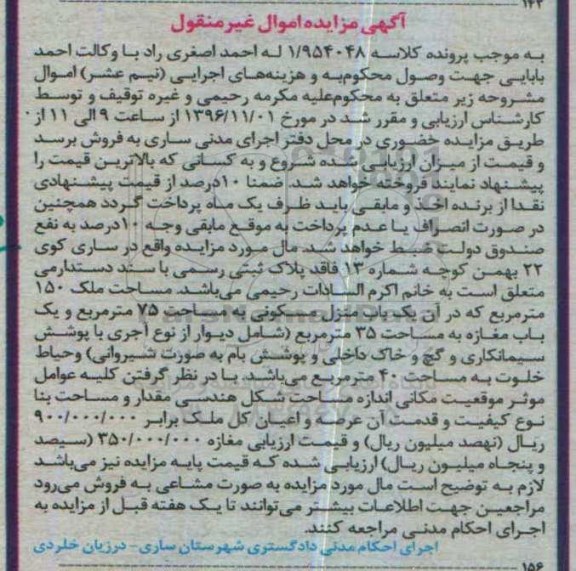 ۱۴۳
آگهی مزایده اموال غیر منقول
به موجب پرونده کلاسه ۱/۹۵۴۰۴۸ له احمد اصغری راد با وکالت احمد
بابایی جهت وصول محکوم‌به و هزینه‌های اجرایی (نیم عشر) اموال
مشروحه زیر متعلق به محکوم‌علیه مکرمه رحیمی و غیره توقیف و توسط
کارشناس ارزیابی و مقرر شد در مورخ ۱۳۹۶/۱۱/۰۱ از ساعت ۹ الی ۱۱ از
طریق مزایده حضوری در محل دفتر اجرای مدنی ساری به فروش برسد
و قیمت از میزان ارزیابی شده شروع و به کسانی که بالاترین قیمت را
پیشنهاد نمایند فروخته خواهد شد. ضمنا ۱۰درصد از قیمت پیشنهادی
نقدا از برنده اخذ و مابقی باید ظرف یک ماه پرداخت گردد همچنین
در صورت انصراف یا عدم پرداخت به موقع مابقی وجه ۱۰درصد به نفع
صندوق دولت ضبط خواهد شد. مال مورد مزایده واقع در ساری کوی
۲۲ بهمن کوچه شماره ۱۳ فاقد پلاک ثبتی رسمی با سند دستدارمی
متعلق است به خانم اکرم السادات رحیمی می‌باشد. مساحت ملک ۱۵۰
مترمربع که در آن یک باب منزل مسکونی به مساحت ۷۵ مترمربع و یک
باب مغازه به مساحت ۳۵ مترمربع (شامل دیوار از نوع آجری با پوشش
سیمانکاری و گچ و خاک داخلی و پوشش بام به صورت شیروانی) وحیاط
خلوت به مساحت ۴۰ مترمربع می‌باشد. با در نظر گرفتن کلیه عوامل
موثر موقعیت مکانی اندازه مساحت شکل هندسی مقدار و مساحت بنا
نوع کیفیت و قدمت آن عرصه و اعیان کل ملک برابر ۹۰۰/۰۰۰/۰۰۰
ریال (نهصد میلیون ریال) و قیمت ارزیابی مغازه ۳۵۰/۰۰۰/۰۰۰ (سیصد
و پنجاه میلیون ریال) ارزیابی شده که قیمت پایه مزایده نیز می‌باشد
لازم به توضیح است مال مورد مزایده به صورت مشاعی به فروش می‌رود
مراجعین جهت اطلاعات بیشتر می‌توانند تا یک هفته قبل از مزایده به
اجرای احکام مدنی مراجعه کنند.
اجرای احکام مدنی دادگستری شهرستان ساری- درزیان خلردی
۱۵۶